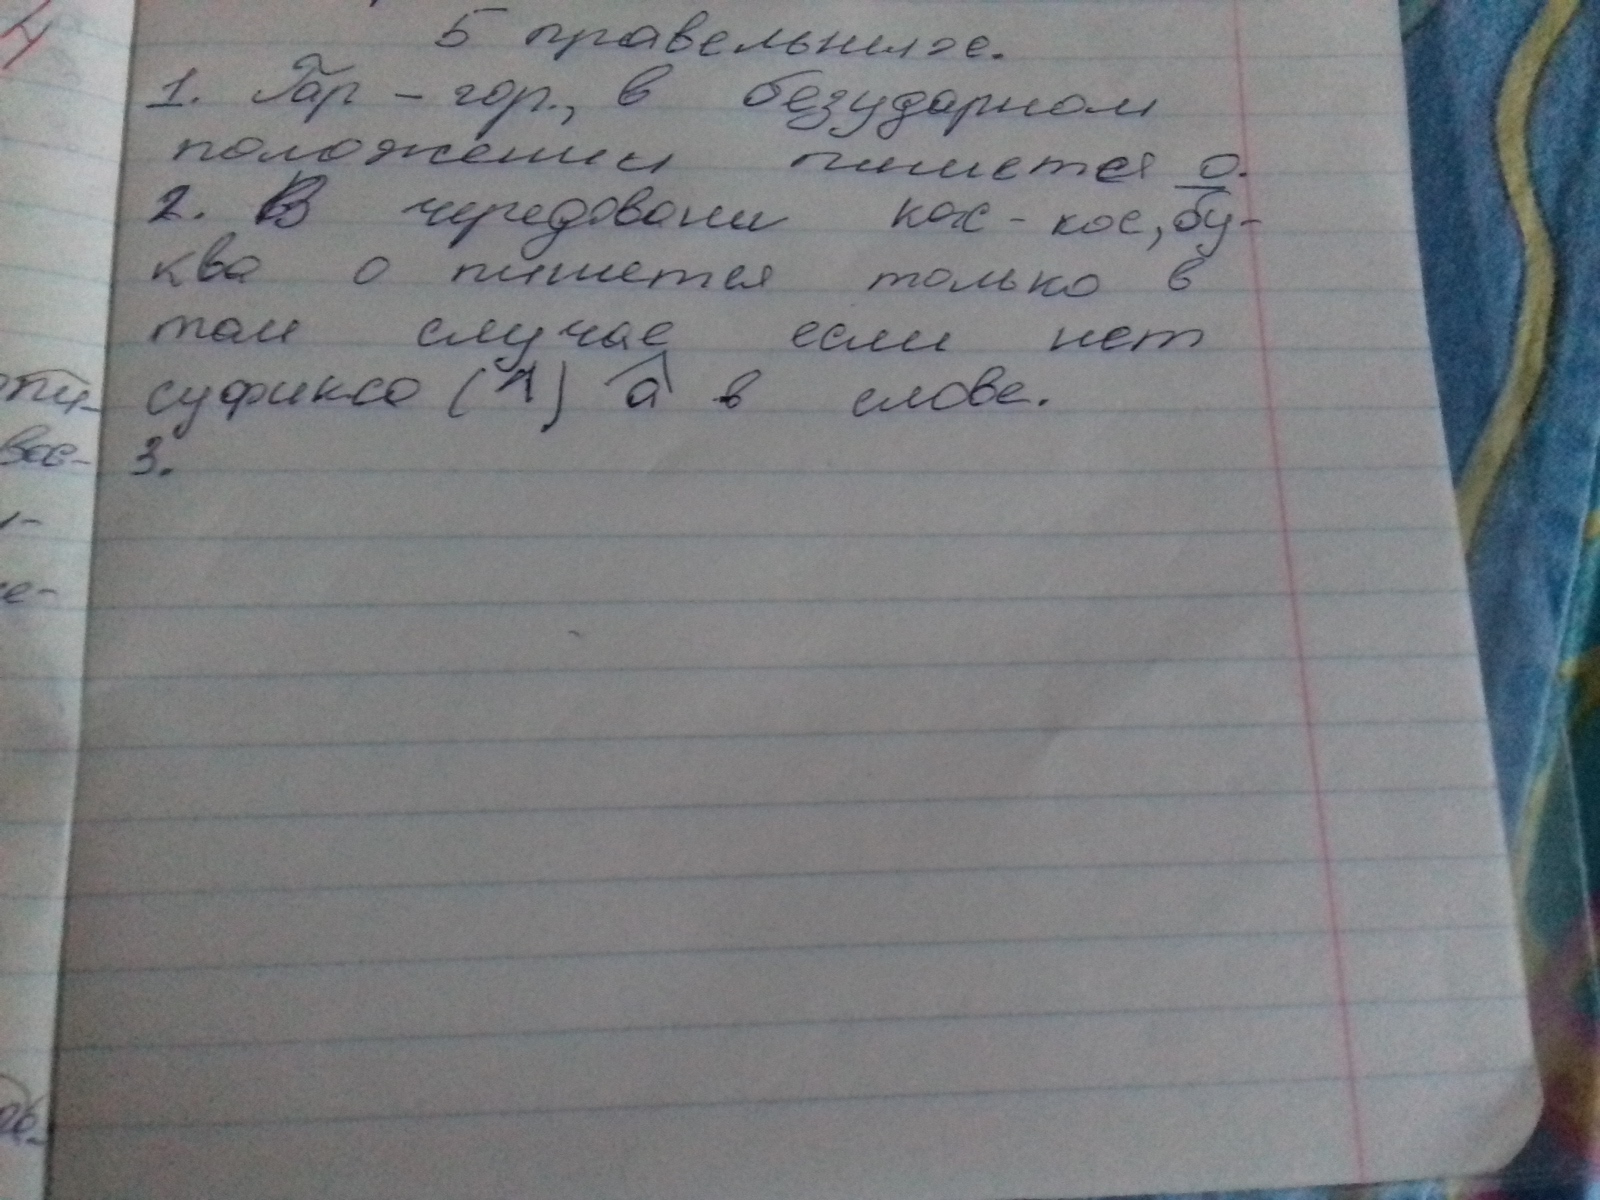 5 правельный.
1. Гар - гор., в безударном
положении пишется о.
2. В чередовани кас - кос, бу-
ква о пишется только в
том случае если нет
суфикса (^) а в слове.
3.
4